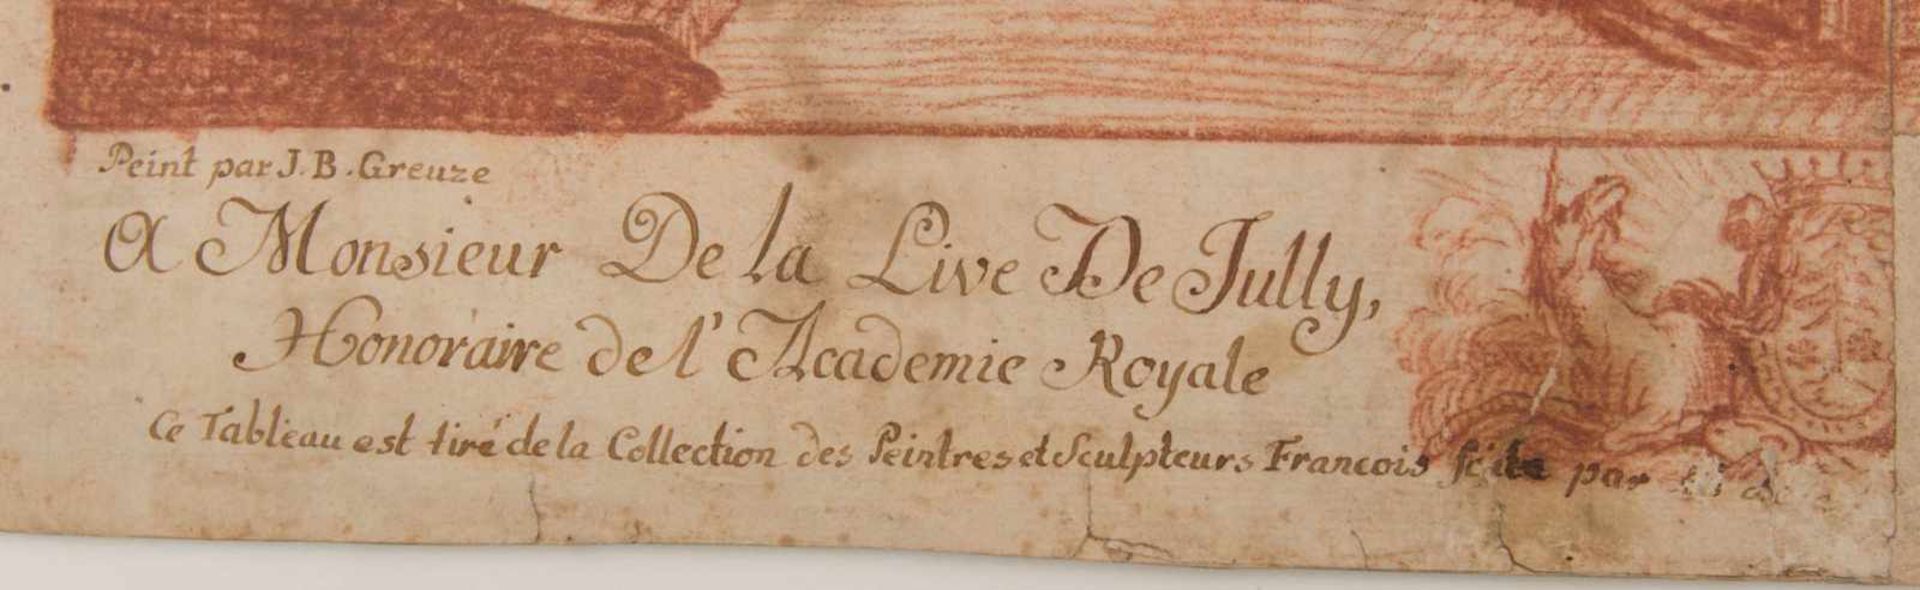 Peint par J. B. Greuze
A Monsieur De la Live De Jully,
Honoraire de l'Academie Royale
Ce Tableau est tiré de la Collection des Peintres et Sculpteurs Francois par